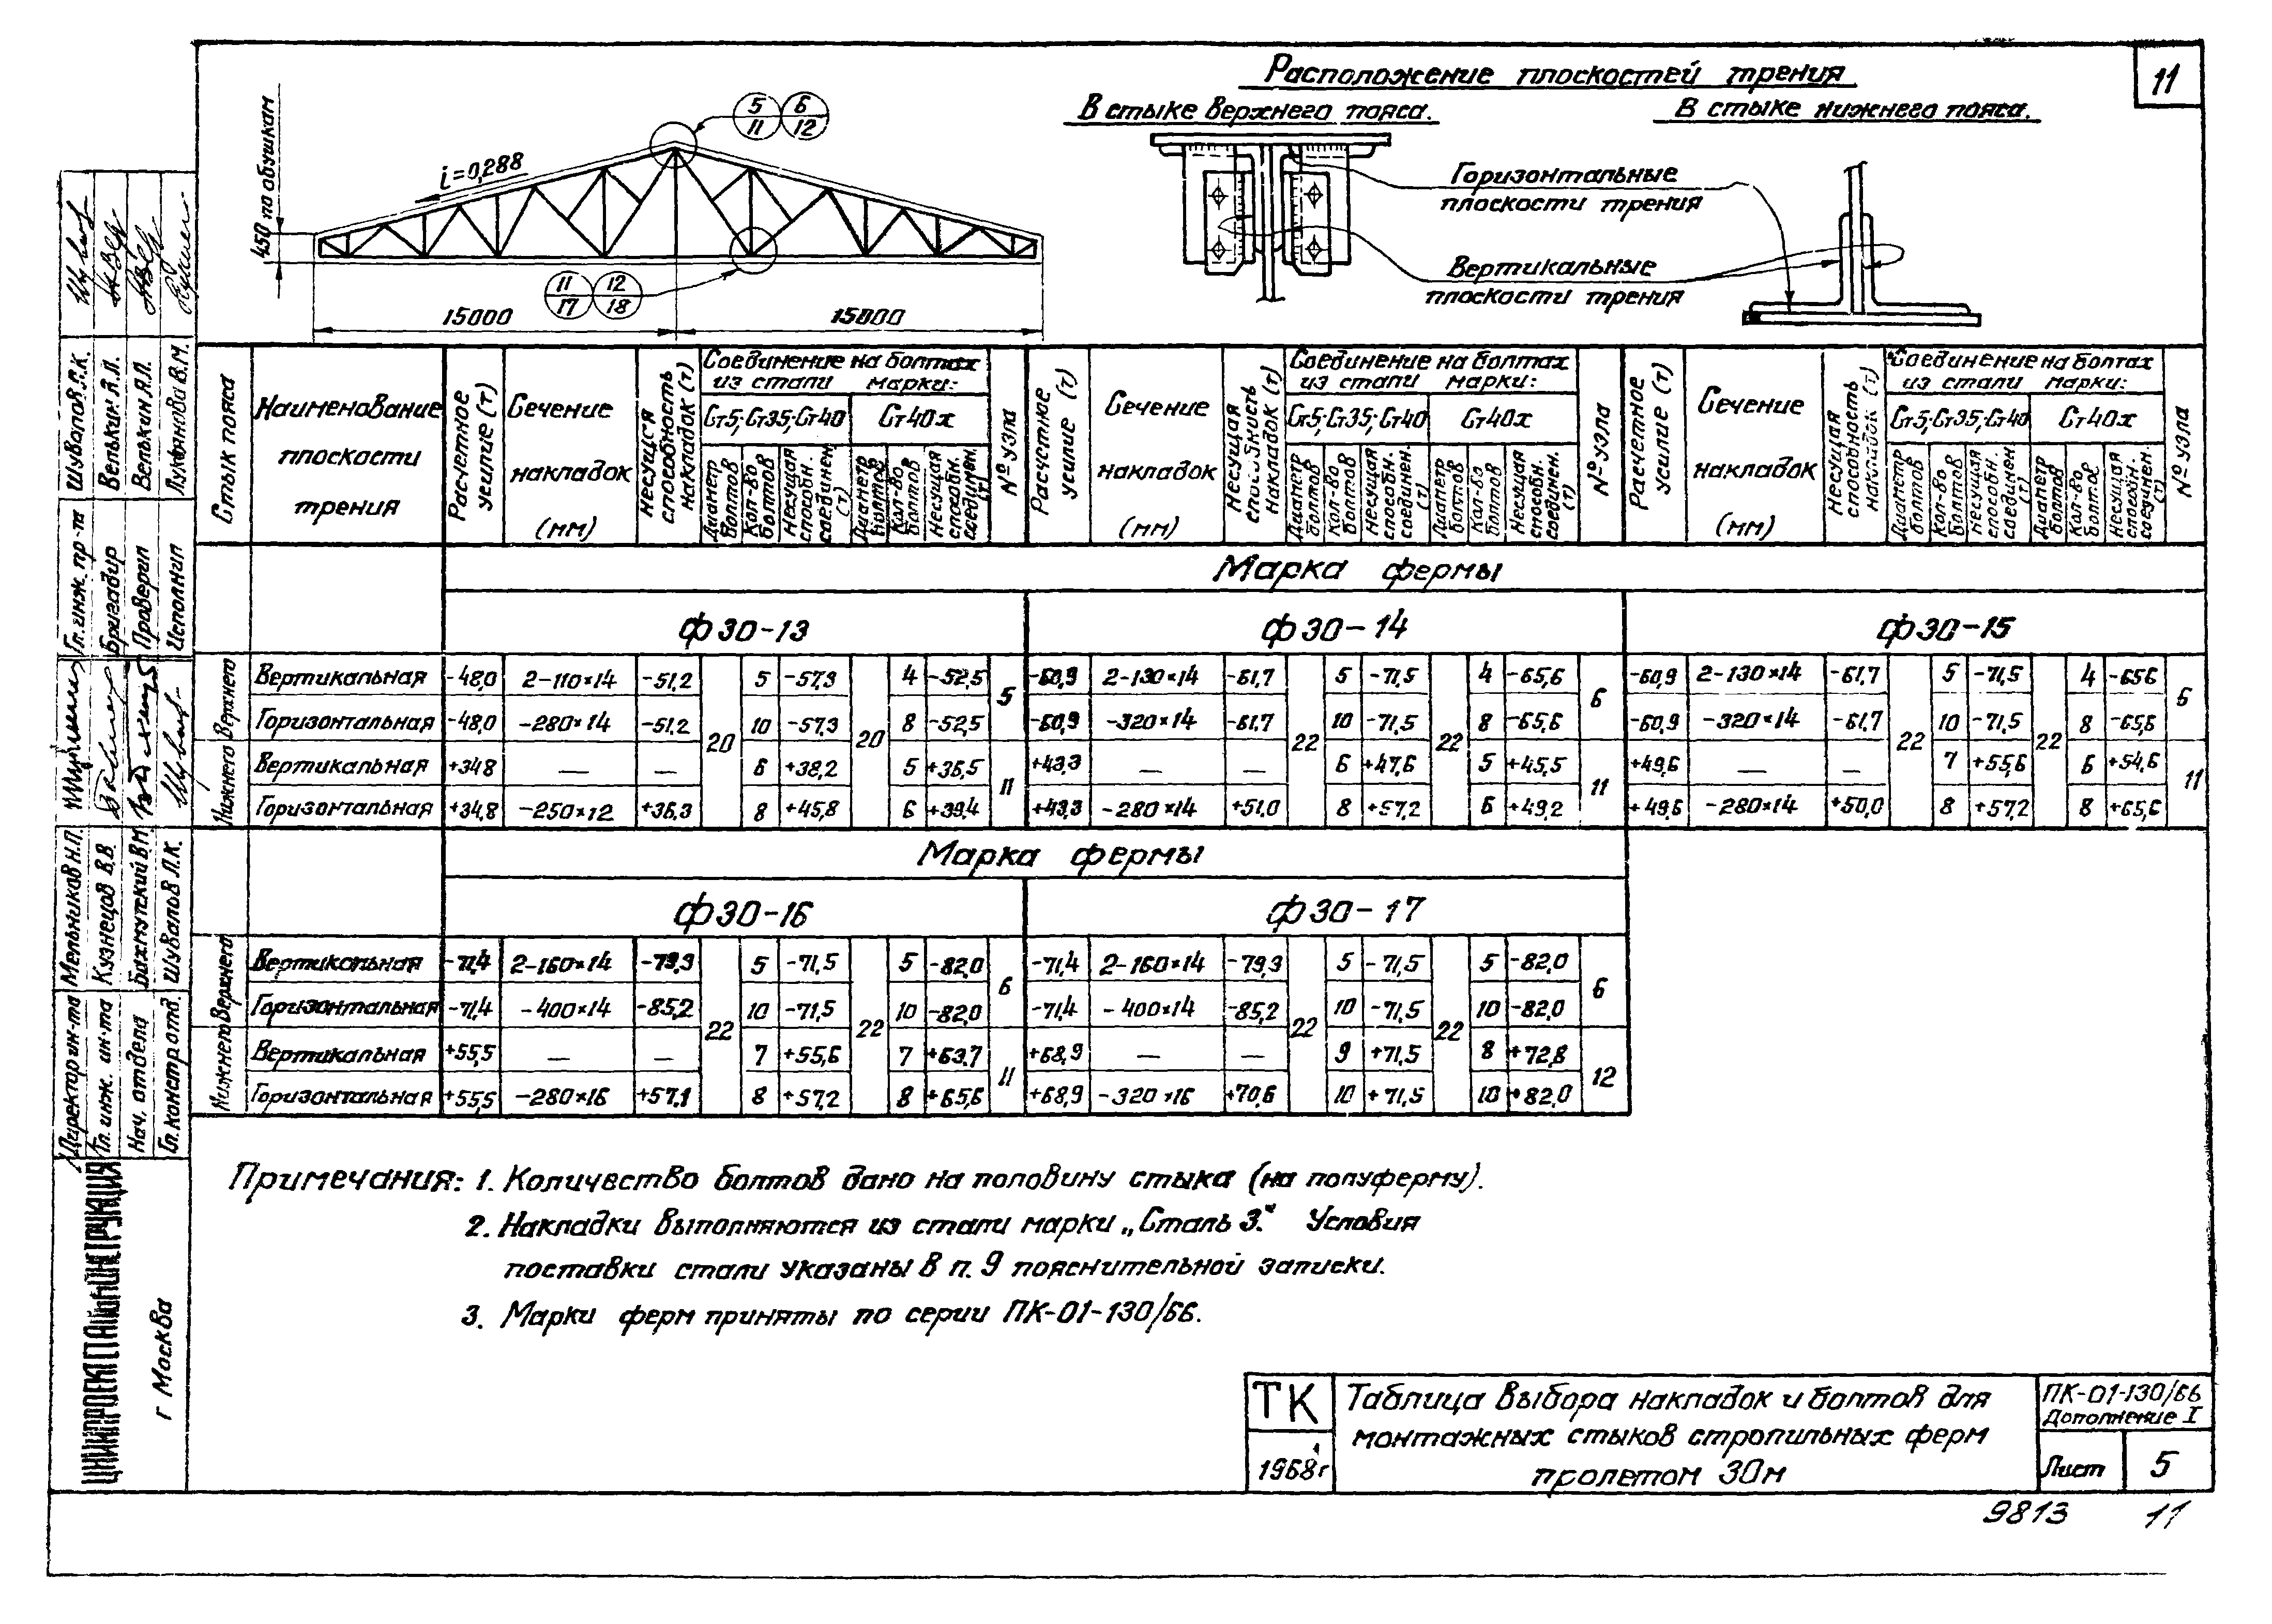 Расположение плоскостей трения
11
В стыке верхнего пояса.
В стыке нижнего пояса.
5 6
11 12
i=0,288
450 по обушкам
11 12
17 18
15000
15000
Горизонтальные
плоскости трения
Вертикальные
плоскости трения
Стык пояса
Наименование плоскости трения
Расчетное усилие (т)
Сечение накладок (мм)
Несущая способность накладок (т)
Соединение на болтах из стали марки:
Ст5; Ст35; Ст40
Ст40х
Диаметр болтов
Кол-во болтов
Несущая способн. соединен. (т)
Диаметр болтов
Кол-во болтов
Несущая способн. соединен. (т)
№ узла
Расчетное усилие (т)
Сечение накладок (мм)
Несущая способность накладок (т)
Соединение на болтах из стали марки:
Ст5; Ст35; Ст40
Ст40х
Диаметр болтов
Кол-во болтов
Несущая способн. соединен. (т)
Диаметр болтов
Кол-во болтов
Несущая способн. соединен. (т)
№ узла
Расчетное усилие (т)
Сечение накладок (мм)
Несущая способность накладок (т)
Соединение на болтах из стали марки:
Ст5; Ст35; Ст40
Ст40х
Диаметр болтов
Кол-во болтов
Несущая способн. соединен. (т)
Диаметр болтов
Кол-во болтов
Несущая способн. соединен. (т)
№ узла
Марка фермы
ф30-13 ф30-14 ф30-15
Верхнего
Вертикальная -48,0 2-110×14 -51,2 5 -57,3 4 -52,5 5 -60,9 2-130×14 -61,7 5 -71,5 4 -65,6 6 -60,9 2-130×14 -61,7 5 -71,5 4 -65,6 6
Горизонтальная -48,0 -280×14 -51,2 10 -57,3 8 -52,5 -60,9 -320×14 -61,7 10 -71,5 8 -65,6 -60,9 -320×14 -61,7 10 -71,5 8 -65,6
20 20 22 22 22 22
Нижнего
Вертикальная +34,8 — — 6 +38,2 5 +36,5 11 +43,3 — — 6 +47,6 5 +45,5 11 +49,6 — — 7 +55,6 6 +54,6 11
Горизонтальная +34,8 -250×12 +36,3 8 +45,8 6 +39,4 +43,3 -280×14 +51,0 8 +57,2 6 +49,2 +49,6 -280×14 +50,0 8 +57,2 8 +65,6
Марка фермы
ф30-16 ф30-17
Верхнего
Вертикальная -71,4 2-160×14 -79,3 5 -71,5 5 -82,0 6 -71,4 2-160×14 -79,3 5 -71,5 5 -82,0 6
Горизонтальная -71,4 -400×14 -85,2 10 -71,5 10 -82,0 -71,4 -400×14 -85,2 10 -71,5 10 -82,0
22 22 22 22
Нижнего
Вертикальная +55,5 — — 7 +55,6 7 +63,7 11 +68,9 — — 9 +71,5 8 +72,8 12
Горизонтальная +55,5 -280×16 +57,1 8 +57,2 8 +65,6 +68,9 -320×16 +70,6 10 +71,5 10 +82,0
Примечания: 1. Количество болтов дано на половину стыка (на полуферму).
2. Накладки выполняются из стали марки „Сталь 3.“ Условия
поставки стали указаны в п. 9 пояснительной записки.
3. Марки ферм приняты по серии ПК-01-130/66.
ТК
1968г
Таблица выбора накладок и болтов для
монтажных стыков стропильных ферм
пролетом 30м
ПК-01-130/66
Дополнение I
Лист 5
9813 11
Гл. инж. пр-та Шувалов Л.К.
Бригадир Велькин Я.Л.
Проверил Велькин Я.Л.
Исполнил Лукьянова В.М.
Директор ин-та Мельников Н.П.
Гл. инж. ин-та Кузнецов В.В.
Нач. отдела Бахмутский В.М.
Гл. констр. отд. Шувалов Л.К.
ЦНИИПРОЕКТСТАЛЬКОНСТРУКЦИЯ
г Москва